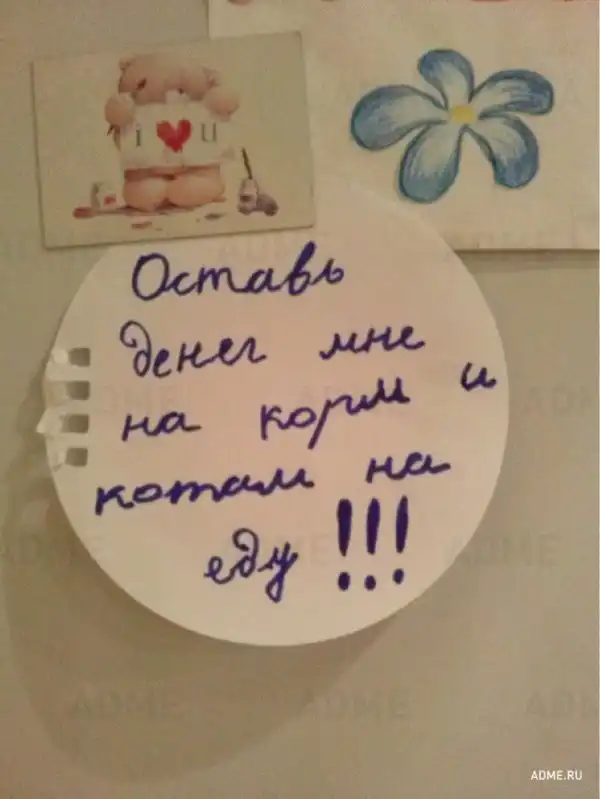 i ❤ u
Оставь
денег мне
на корм и
котам на
еду !!!
ADME
ADME.RU